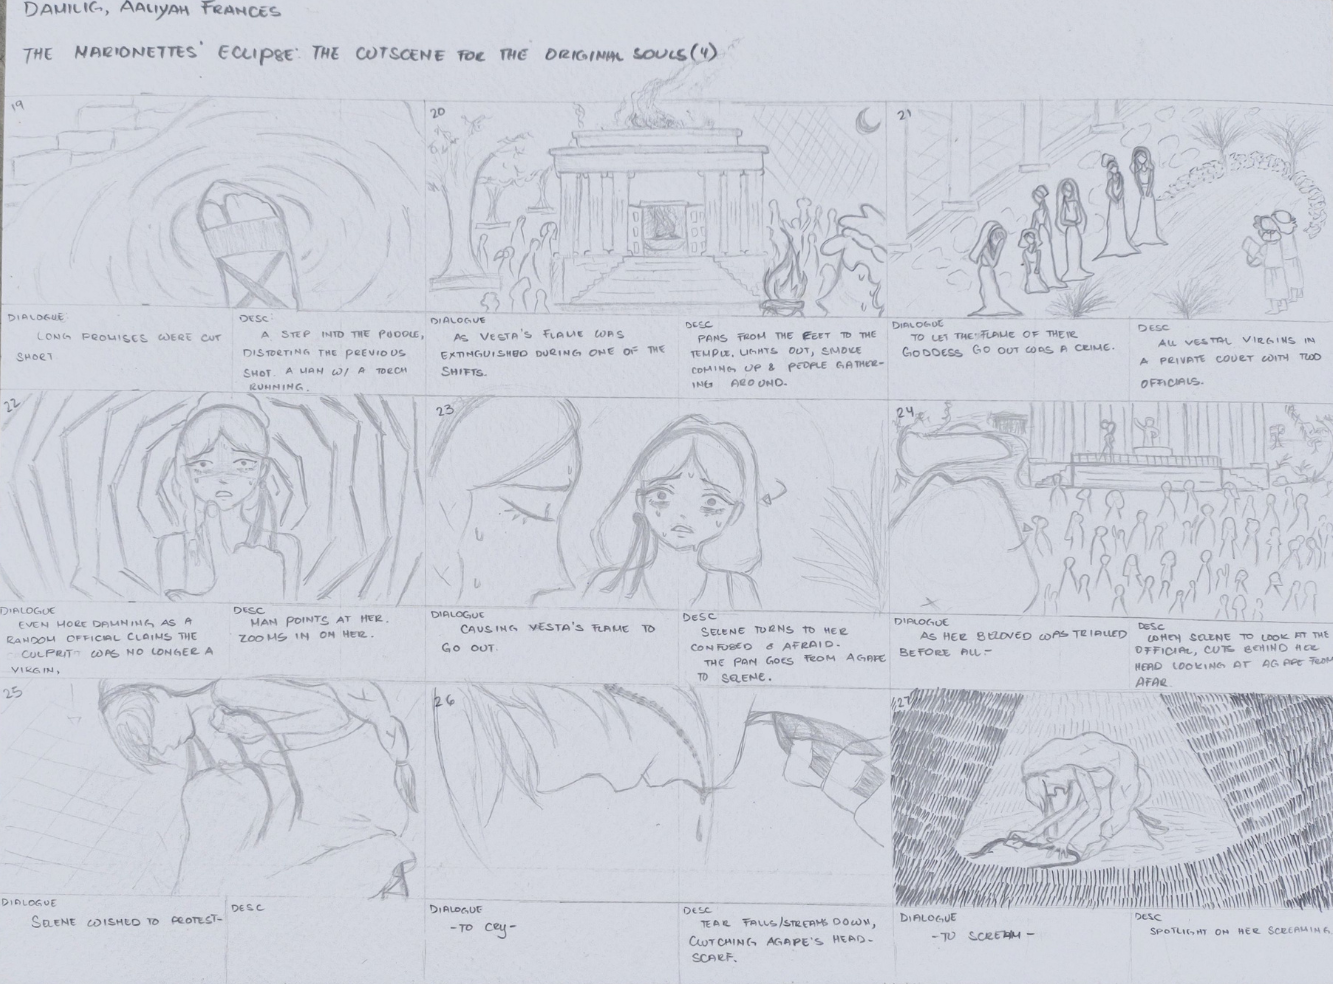 DAMILIG, AALIYAH FRANCES
THE MARIONETTES' ECLIPSE: THE CUTSCENE FOR THE ORIGINAL SOULS (4)
19
DIALOGUE:
LONG PROMISES WERE CUT
SHORT
DESC:
A STEP INTO THE PUDDLE,
DISTORTING THE PREVIOUS
SHOT. A MAN W/ A TORCH
RUNNING.
20
DIALOGUE
AS VESTA'S FLAME WAS
EXTINGUISHED DURING ONE OF THE
SHIFTS.
DESC
PANS FROM THE FEET TO THE
TEMPLE. LIGHTS OUT, SMOKE
COMING UP & PEOPLE GATHER-
ING AROUND.
21
DIALOGUE
TO LET THE FLAME OF THEIR
GODDESS GO OUT WAS A CRIME.
DESC
ALL VESTAL VIRGINS IN
A PRIVATE COURT WITH TWO
OFFICIALS.
22
DIALOGUE
EVEN MORE DAMNING AS A
RANDOM OFFICIAL CLAIMS THE
CULPRIT WAS NO LONGER A
VIRGIN,
DESC
MAN POINTS AT HER.
ZOOMS IN ON HER.
23
DIALOGUE
CAUSING VESTA'S FLAME TO
GO OUT.
DESC
SELENE TURNS TO HER
CONFUSED & AFRAID.
THE PAN GOES FROM AGAPE
TO SELENE.
24
DIALOGUE
AS HER BELOVED WAS TRIALLED
BEFORE ALL-
DESC
WHEN SELENE TO LOOK AT THE
OFFICIAL, CUTS BEHIND HER
HEAD LOOKING AT AGAPE FROM
AFAR.
25
DIALOGUE
SELENE WISHED TO PROTEST-
DESC
26
DIALOGUE
-TO CRY-
DESC
TEAR FALLS/STREAMS DOWN,
CLUTCHING AGAPE'S HEAD-
SCARF.
27
DIALOGUE
-TO SCREAM-
DESC
SPOTLIGHT ON HER SCREAMING